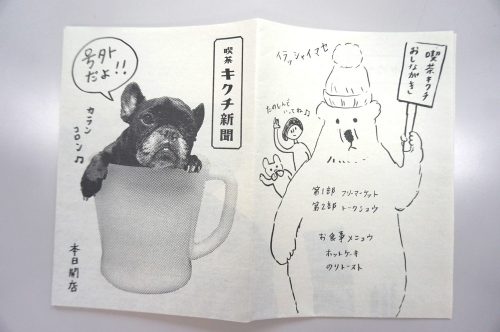 号外
だよ!!
喫茶
キクチ新聞
カラン
コロン♫
本日開店
イラッシャイマセ
喫茶キクチ
おしながき
たのしんで
いってね♫
第1部 フリーマーケット
第2部 トークショウ
お食事メニュウ
ホットケーキ
のりトースト